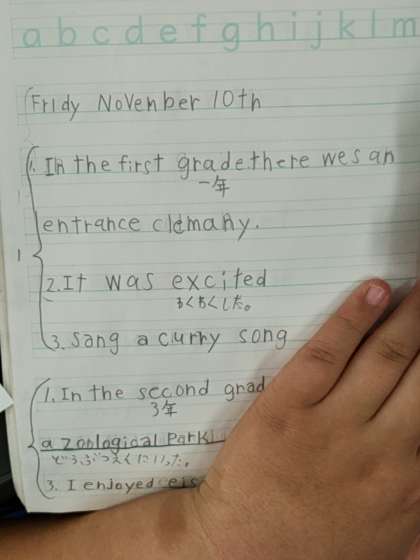 a b c d e f g h i j k l m
Fridy November 10th
1. In the first grade.there wes an
一年
entrance cldmany.
1
2.It was excited
わくわくした。
3. Sang a curry song
1. In the second grad
3年
a zoological Park
どうぶつえんにいった。
3. I enjoyed